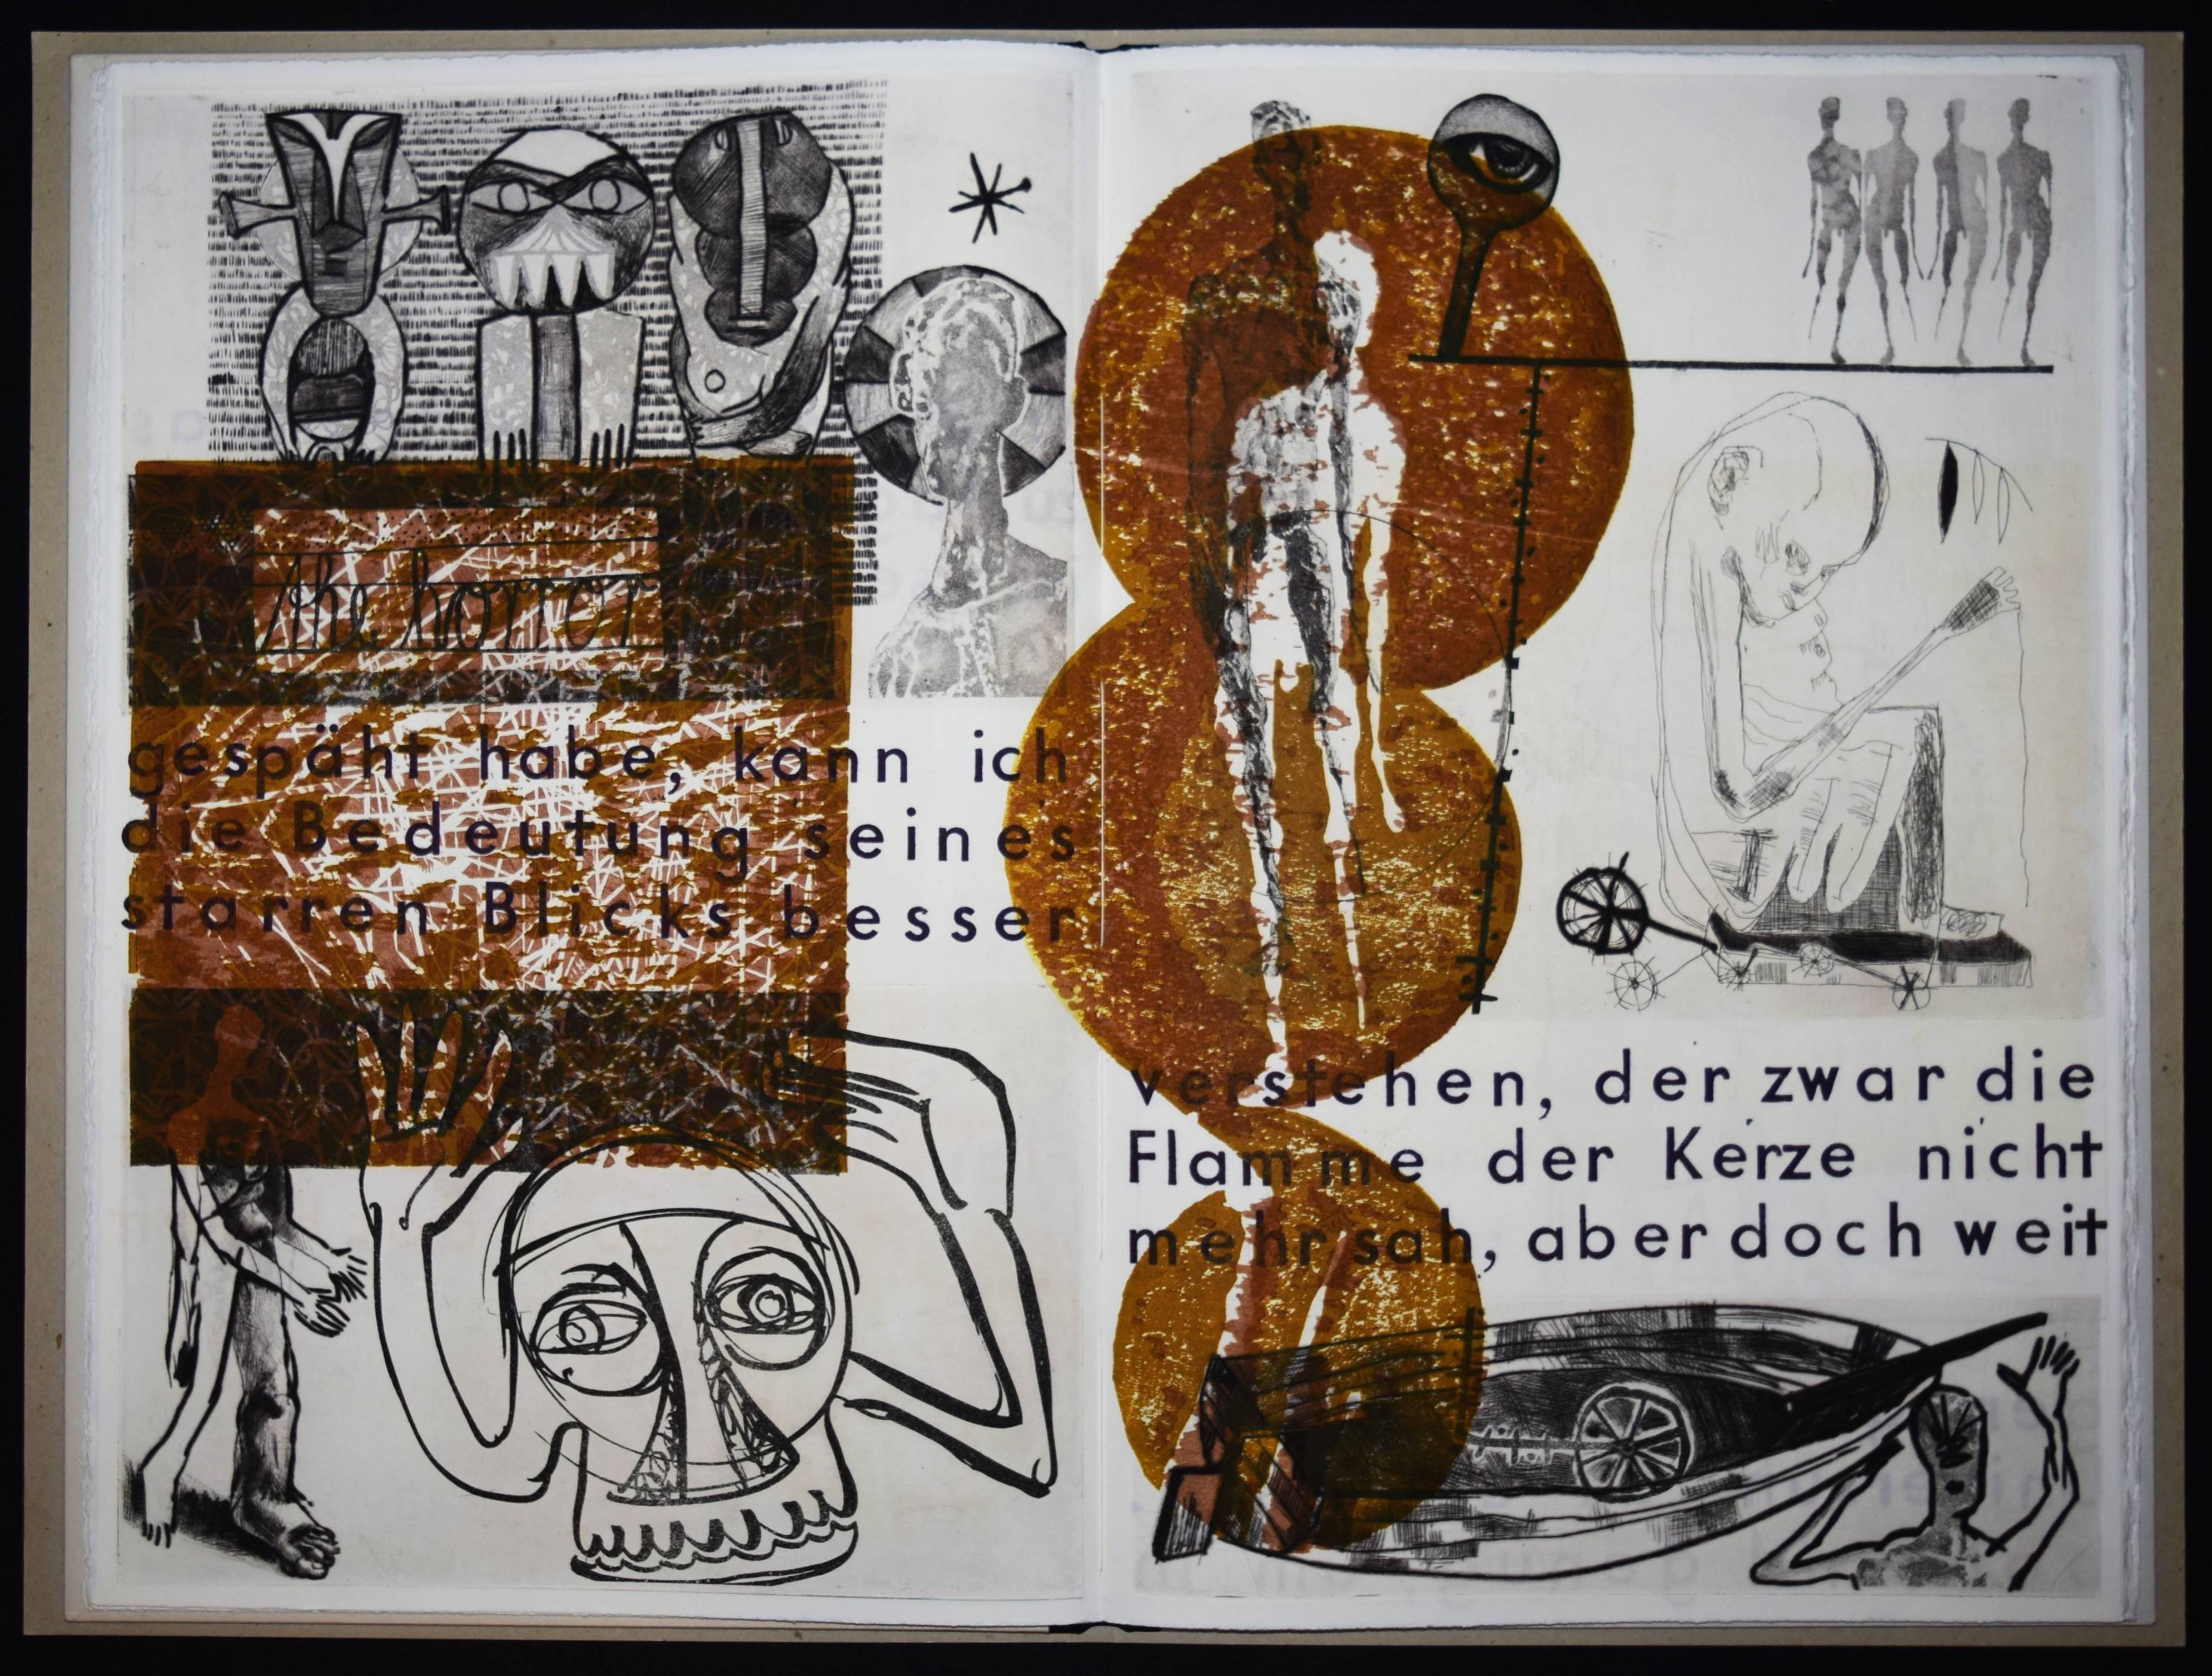 the horror
gespäht habe, kann ich
die Bedeutung seines
starren Blicks besser
verstehen, der zwar die
Flamme der Kerze nicht
mehr sah, aber doch weit